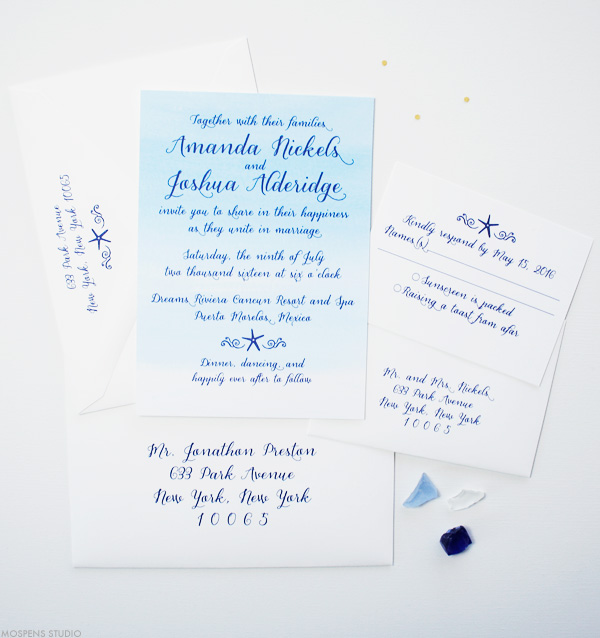 Together with their families
Amanda Nickels
and
Joshua Alderidge
invite you to share in their happiness
as they unite in marriage
Saturday, the ninth of July
two thousand sixteen at six o'clock
Dreams Riviera Cancun Resort and Spa
Puerto Morelos, Mexico
Dinner, dancing, and
happily ever after to follow
633 Park Avenue
New York, New York 10065
Kindly respond by May 15, 2016
Name(s)
Sunscreen is packed
Raising a toast from afar
Mr. and Mrs. Nickels
633 Park Avenue
New York, New York
10065
Mr. Jonathan Preston
633 Park Avenue
New York, New York
10065
MOSPENS STUDIO